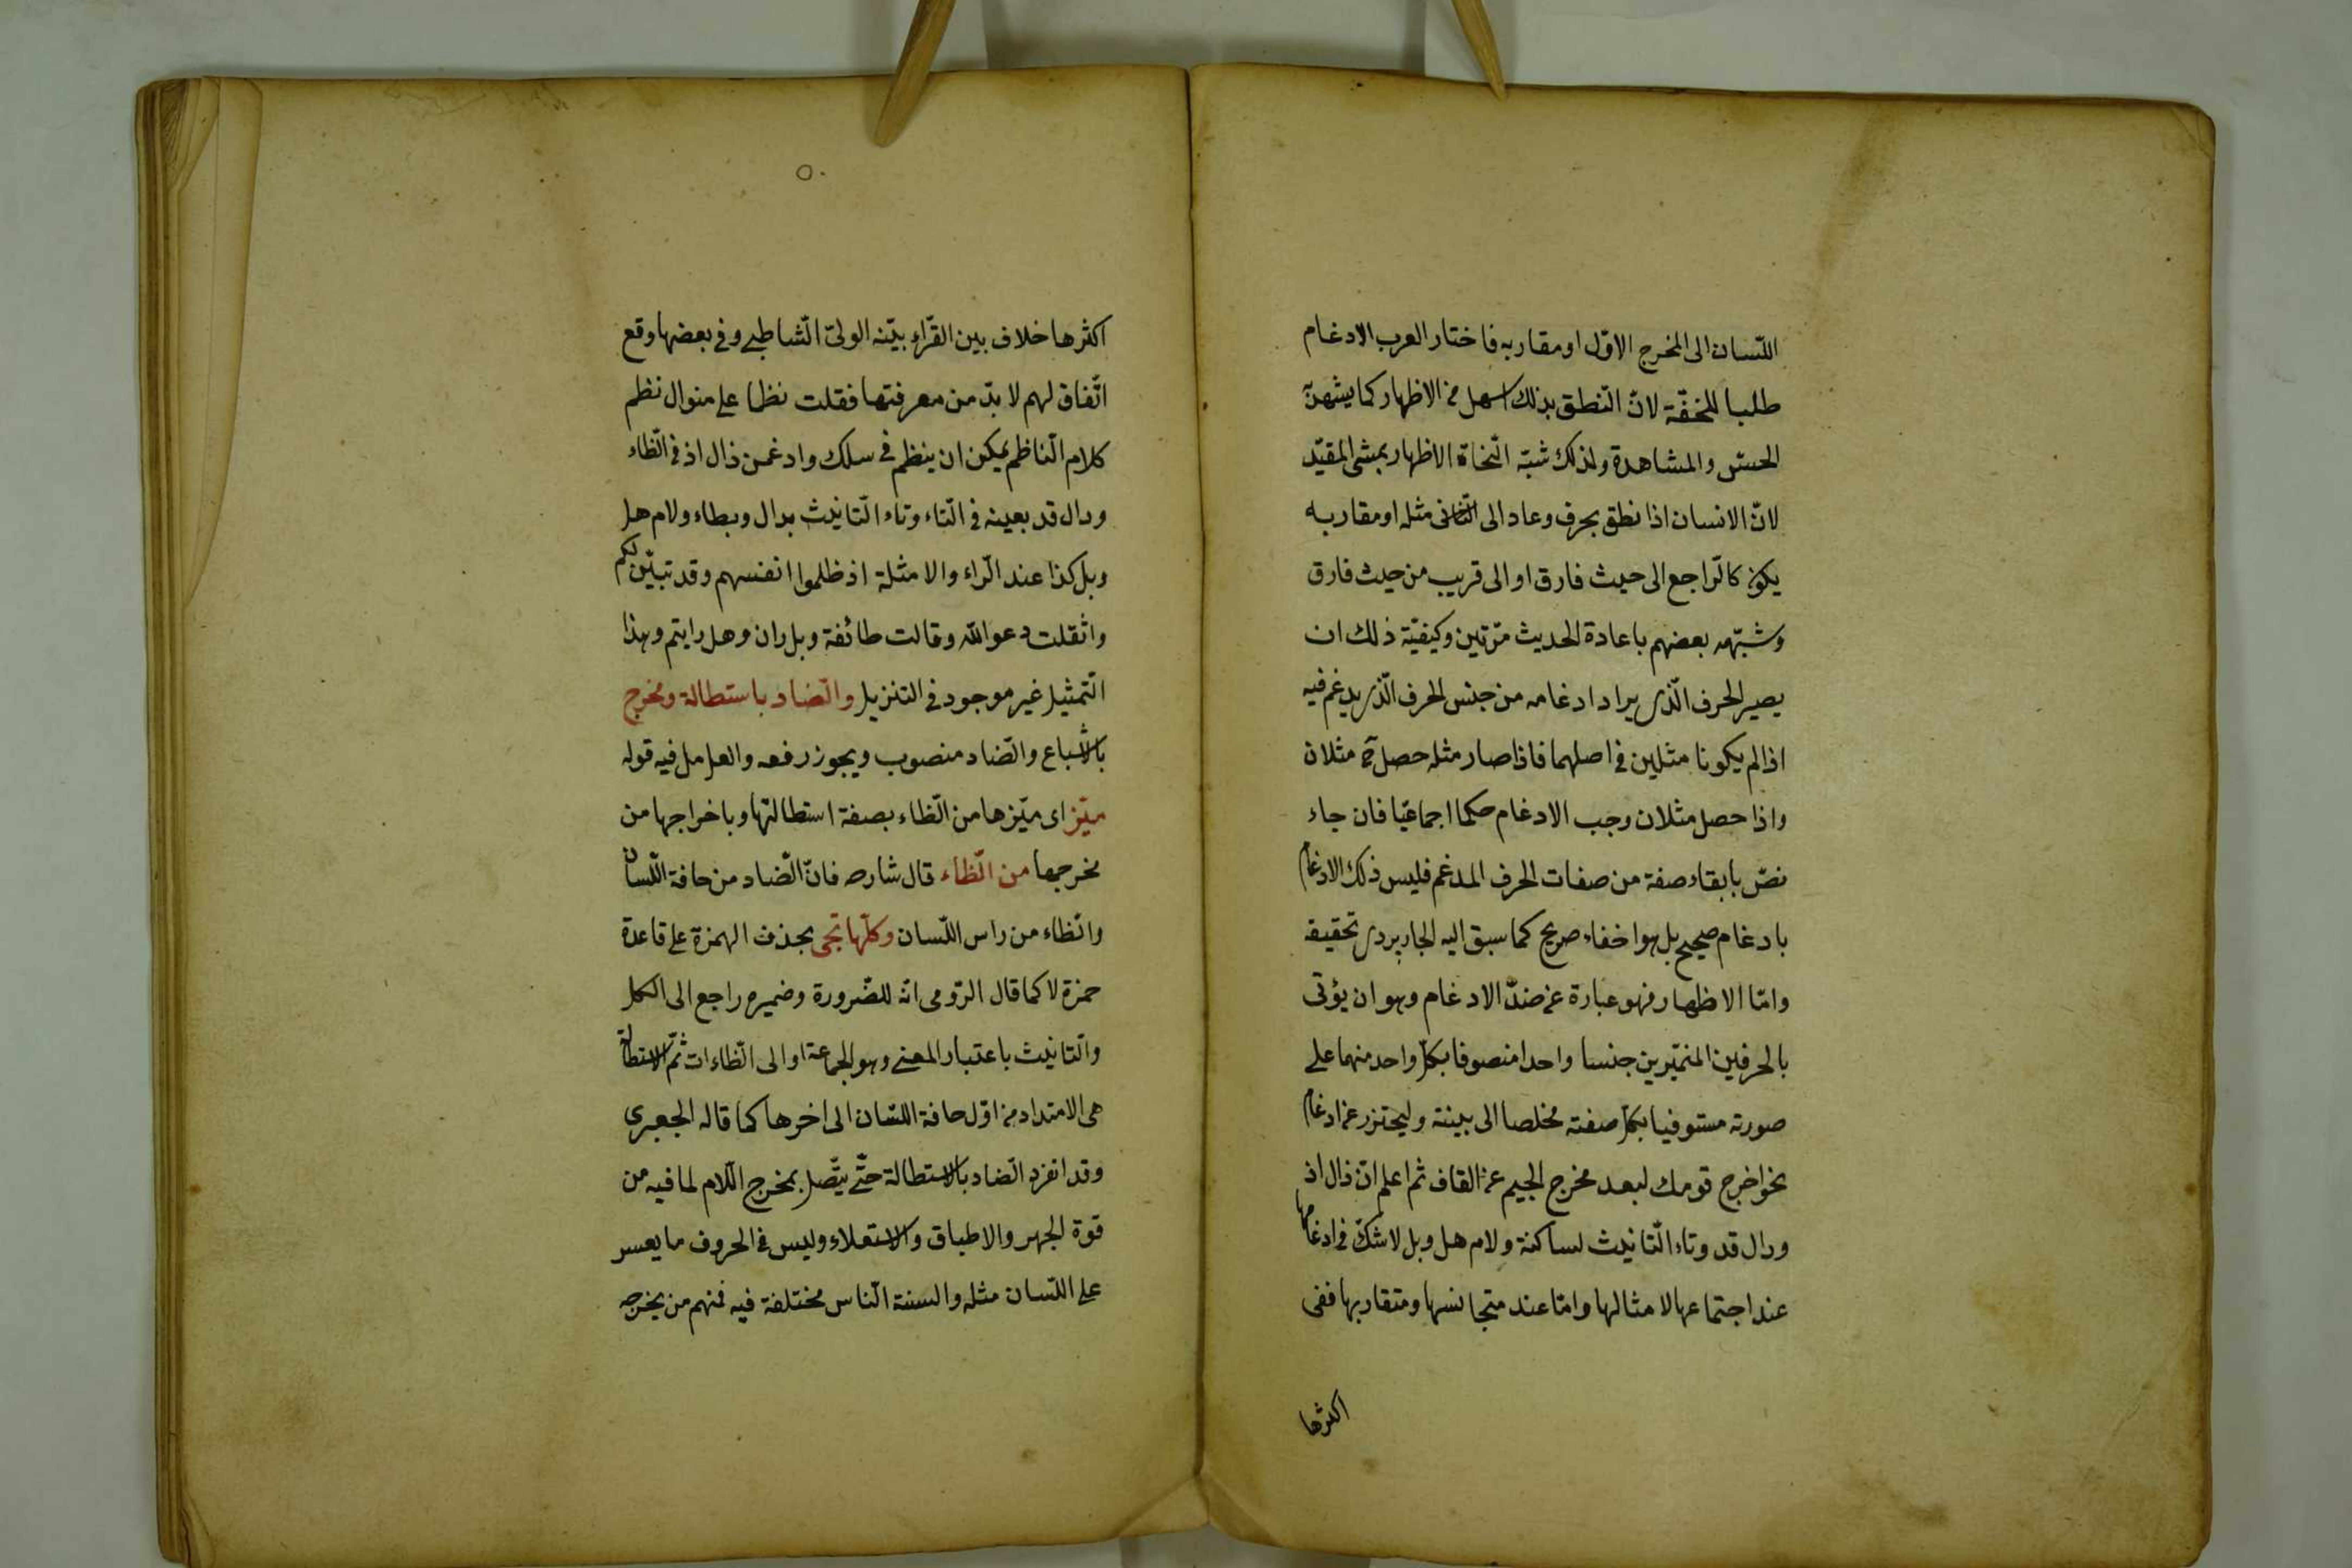 اللّسان الى المخرج الاوّل او مقاربه فاختار العرب الادغام
طلبا للخفّة لانّ النطق بذلك اسهل من الاظهار كما يشهد
الحسّ والمشاهدة ولذلك شبّه النّحاة الاظهار بمشى المقيّد
لانّ الانسان اذا نطق بحرف وعاد الى الثّانى مثله او مقاربه
يكون كالرّاجع الى حيث فارق او الى قريب من حيث فارق
وشبّهه بعضهم باعادة الحديث مرّتين وكيفيّة ذلك ان
يصير الحرف الّذى يراد ادغامه من جنس الحرف الّذى يدغم فيه
اذا لم يكونا مثلين فى اصلهما فاذا صار مثله حصل ح مثلان
واذا حصل مثلان وجب الادغام حكما اجماعيّا فان جاء
نصّ بابقاء صفة من صفات الحرف المدغم فليس ذلك الادغام
بادغام صحيح بل هو اخفاء صريح كما سبق اليه الجاربردى تحقيقه
وامّا الاظهار فهو عبارة عن ضدّ الادغام وهو ان يؤتى
بالحرفين جنسا واحدا منصوفا بكلّ واحد منهما على
صورته مستوفيا بكلّ صفته مخلصا الى بينته وليحترز عن ادغام
نحو اخرج قومك لبعد مخرج الجيم عن القاف ثم اعلم انّ ذال اذ
ودال قد وتاء التّانيث لساكنة ولام هل وبل لا شكّ فى ادغامها
عند اجتماعها لامثالها وامّا عند متجانسها ومتقاربها ففى
اكثرها
٥٠
اكثرها خلاف بين القرّاء بيّنه الولىّ الشّاطبى وفى بعضها وقع
اتّفاق لهم لا بدّ من معرفتها فقلت نظما على منوال نظم
كلام النّاظم يمكن ان ينظم فى سلك وادغمن ذال اذ فى الظّاء
ودال قد بعينه فى التّاء وتاء التّانيث بدال وبطاء ولام هل
وبل كذا عند الرّاء والامثلة اذ ظلموا انفسهم وقد تبيّن لكم
واثقلت دعوا الله وقالت طائفة وبل ران وهل رايتم وهذا
التّمثيل غير موجود فى التنزيل والضّاد باستطالة ومخرج
بالاشباع والضّاد منصوب ويجوز رفعه والعامل فيه قوله
ميّز اى ميّزها من الظّاء بصفة استطالتها وباخراجها من
مخرجها من الظّاء قال شارح فانّ الضّاد من حافة اللّسان
والظّاء من راس اللّسان وكلّها تجى بحذف الهمزة على قاعدة
حمزة لا كما قال الرّومى انّه للضّرورة وضميره راجع الى الكل
والتّانيث باعتبار المعنى وهو الجماعة او الى الظّاءات ثمّ الاستطالة
هى الامتداد من اوّل حافة اللسّان الى اخرها كما قاله الجعبرى
وقد انفرد الضّاد بالاستطالة حتّى يتّصل بمخرج اللّام لما فيه من
قوة الجهر والاطباق والاستعلاء وليس فى الحروف ما يعسر
على اللّسان مثله والسنة النّاس مختلفة فيه فمنهم من يخرجه